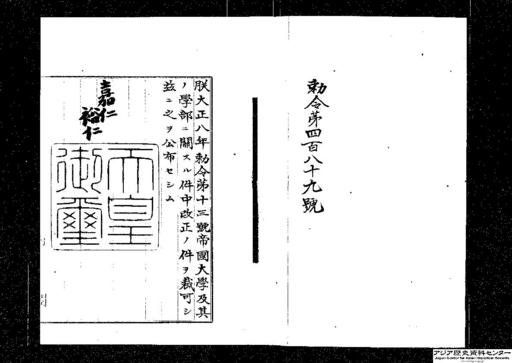 勅令第四百八十九號
朕大正八年勅令第十三號帝國大學及其
ノ學部ニ關スル件中改正ノ件ヲ裁可シ
茲ニ之ヲ公布セシム
嘉仁
裕仁
天皇
御璽
アジア歴史資料センター
Japan Center for Asian Historical Records